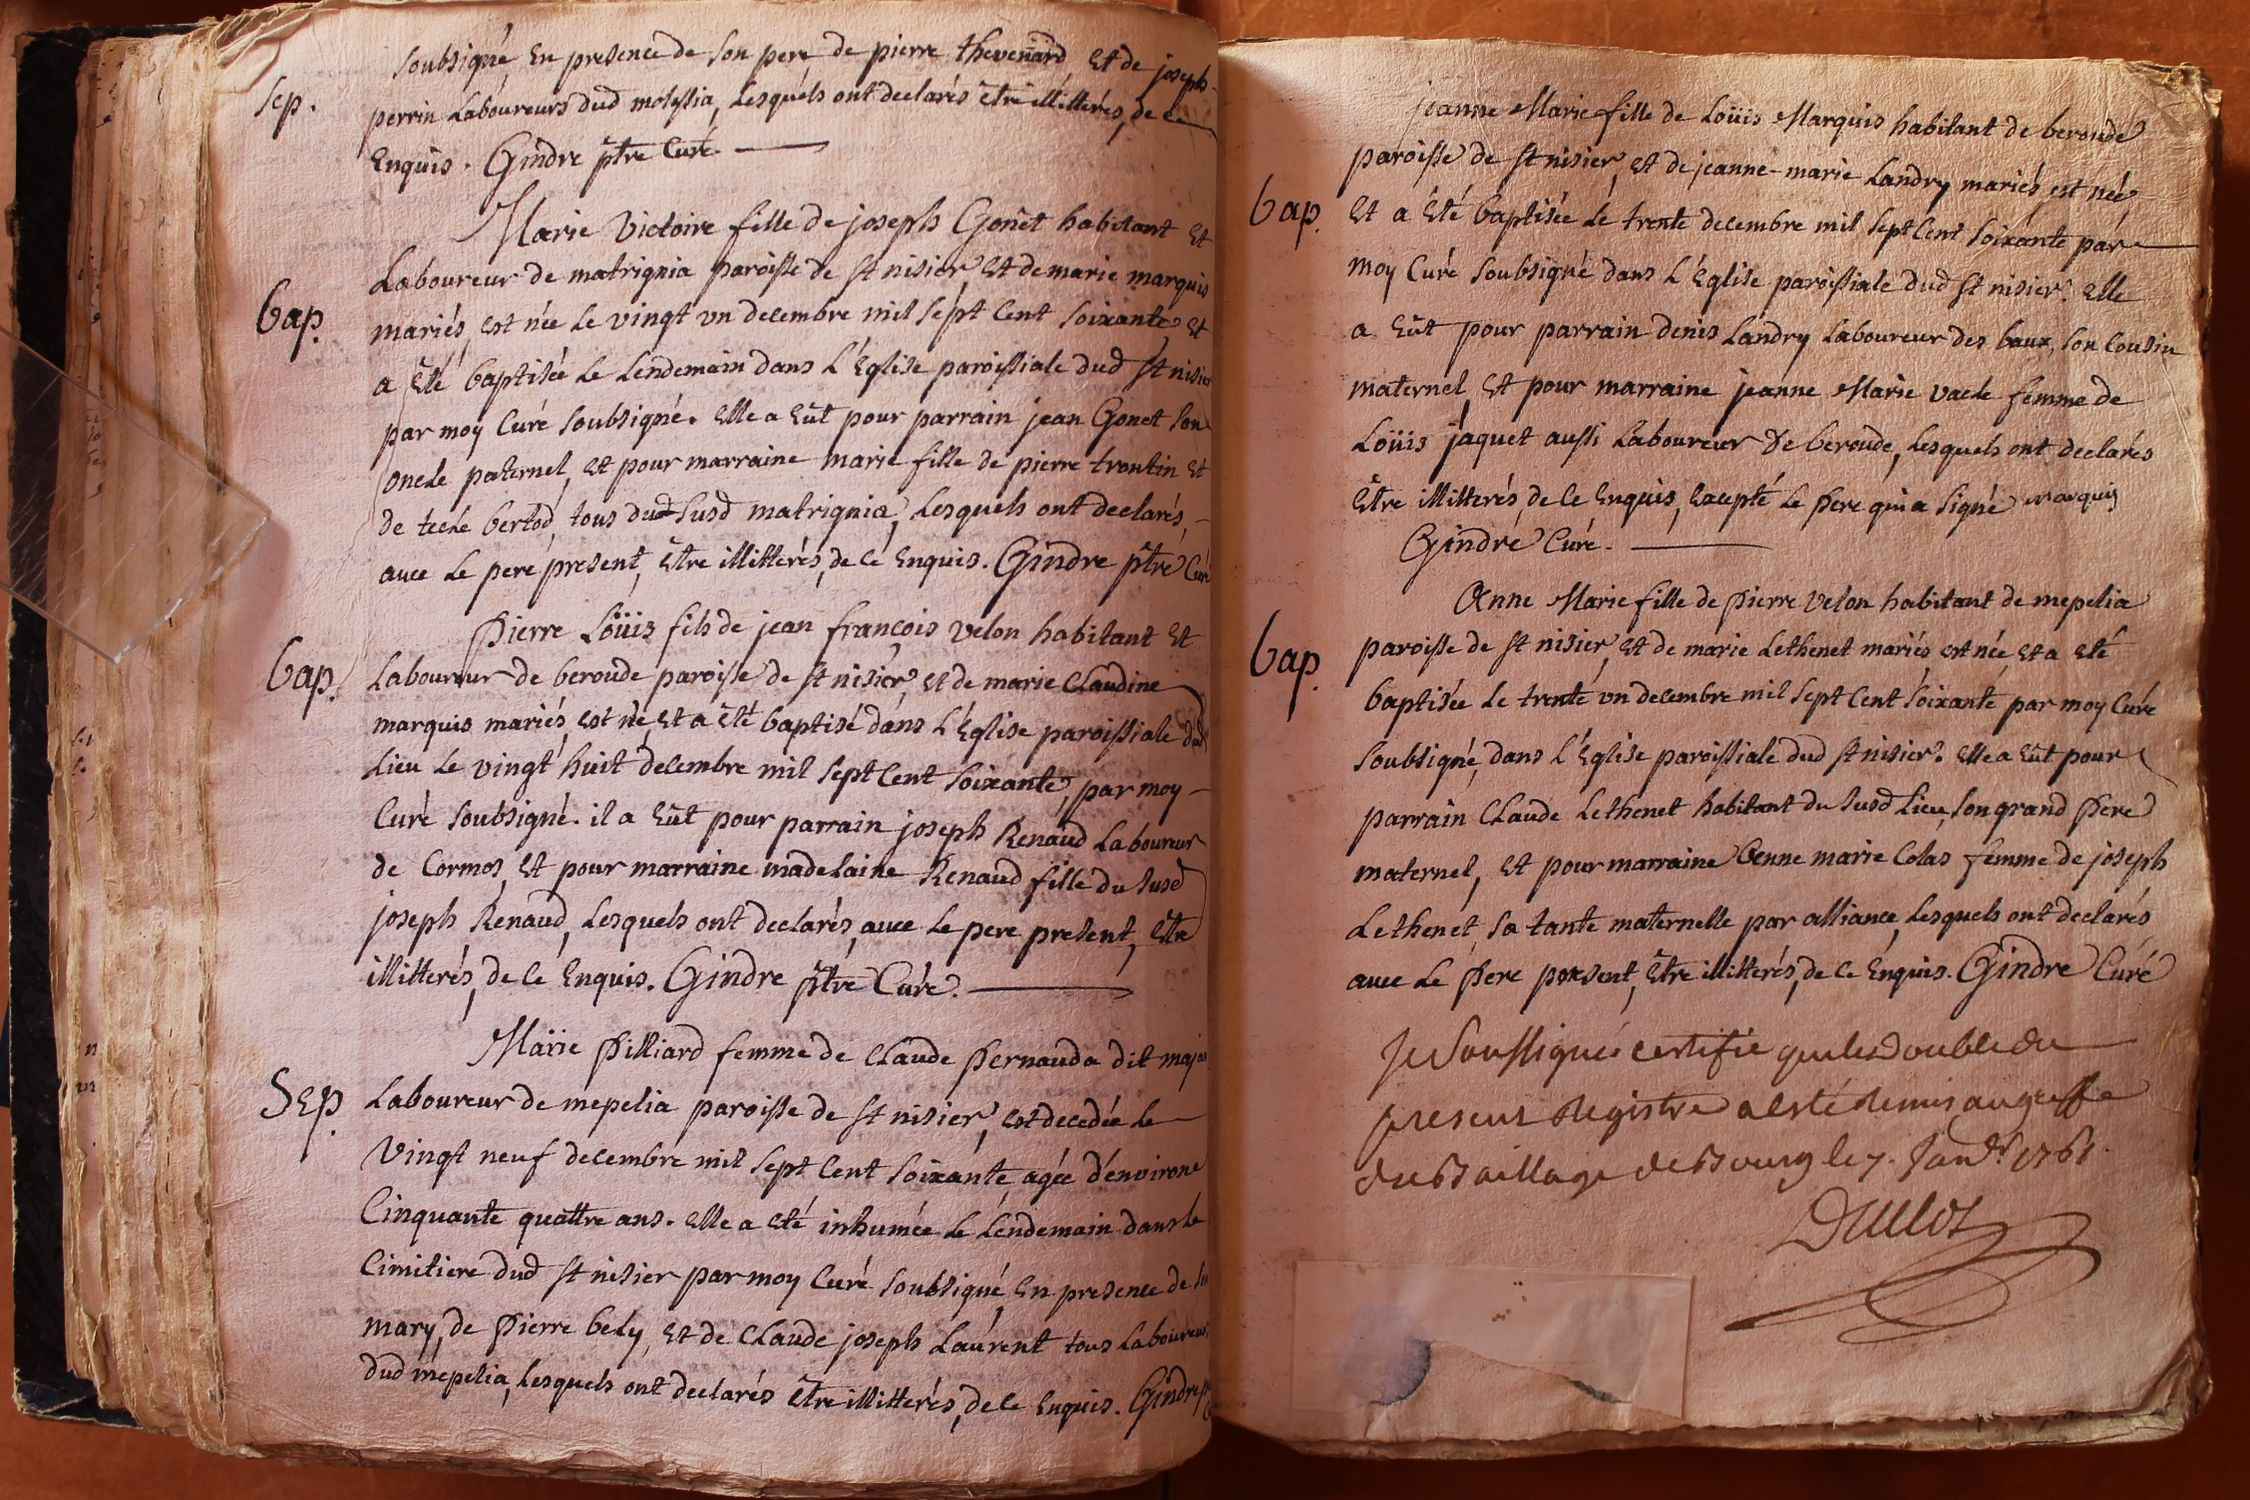 soubsigné En presence de son pere de pierre thevenard Et de joseph
sep.
perrin Laboureurs dud molissia, Lesquels ont declarés être illitterés, de ce
Enquis. Gindre ptre Curé.
Marie Victoire fille de joseph Gonet habitant Et
Laboureur de matrignia paroisse de st nisier, Et de marie marquis
bap.
mariés, est née Le vingt un decembre mil sept Cent soixante Et
a Eté baptisée Le Lendemain dans L'Eglise paroissiale dud st nisier
par moy Curé soubsigné. Elle a Eût pour parrain jean Gonet son
oncle paternel, Et pour marraine marie fille de pierre trontin Et
de tecle bertod, tous dud susd matrignia, Lesquels ont declarés,
avec Le pere present, Etre illitterés, de cé Enquis. Gindre ptre Curé
Pierre Loüis fils de jean françois velon habitant Et
bap.
Laboureur de beroude paroisse de st nisier, Et de marie Claudine
marquis mariés, est né, Et a été baptisé dans L'Eglise paroissiale dud
Lieu Le vingt huit decembre mil sept Cent soixante, par moy
Curé soubsigné. il a Eût pour parrain joseph Renaud Laboureur
de Cormos, Et pour marraine madelaine Renaud fille du susd
joseph Renaud, Lesquels ont declarés, avec Le pere present, Etre
illitterés, de cé Enquis. Gindre ptre Curé.
Marie Pilliard femme de Claude Pernauda dit major
Sep.
Laboureur de mepelia paroisse de st nisier, est decedée le
vingt neuf decembre mil sept Cent soixante, agée d'environ
Cinquante quattre ans. elle a eté inhumée Le Lendemain dans le
Cimitiere dud st nisier par moy Curé soubsigné, En presence de son
mary, de Pierre bely, Et de Claude joseph Laurent tous Laboureurs
dud mepelia, Lesquels ont declarés Etre illitterés, de ce Enquis. Gindre
jeanne Marie fille de Loüis Marquis habitant de beroude
paroisse de st nisier, Et de jeanne-marie Landry mariés, est née
bap.
Et a Eté baptisée Le trente decembre mil sept Cent soixante par
moy Curé soubsigné dans L'Eglise paroissiale dud st nisier. Elle
a Eût pour parrain denis Landry Laboureur des baux, son Cousin
maternel, Et pour marraine jeanne Marie vacle femme de
Loüis jaquet aussi Laboureur de beroude, Lesquels ont declarés
Etre illitterés, de ce Enquis, Excepté Le Pere qui a signé marquis
Gindre Curé.
Anne Marie fille de Pierre velon habitant de mepelia
bap.
paroisse de st nisier, Et de marie Lethenet mariés, est née, Et a Eté
baptisée Le trente un decembre mil sept Cent soixante par moy Curé
soubsigné, dans L'Eglise paroissiale dud st nisier. Elle a Eût pour
parrain Claude Lethenet habitant du susd Lieu, son grand Pere
maternel, Et pour marraine benne marie Colas femme de joseph
Lethenet, sa tante maternelle par alliance, Lesquels ont declarés,
avec Le Pere present, Etre illitterés, de ce Enquis. Gindre Curé
Je Soussigné certifie que le double du
present Registre a esté Remis au greffe
du Baillage de Bourg le 7. Janvr 1761.